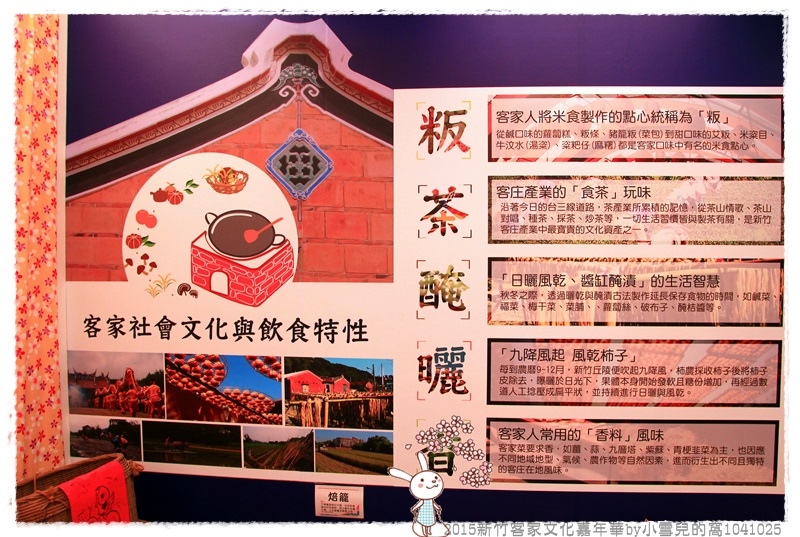 客家社會文化與飲食特性
粄
客家人將米食製作的點心統稱為「粄」
從鹹口味的蘿蔔糕、粄條、豬籠粄(菜包)到甜口味的艾粄、米篩目、
牛汶水(湯粢)、粢粑仔(麻糬)都是客家口味中有名的米食點心。
茶
客庄產業的「食茶」玩味
沿著今日的台三線道路，茶產業所累積的記憶，從茶山情歌、茶山
對唱、種茶、採茶、炒茶等，一切生活習慣皆與製茶有關，是新竹
客庄產業中最寶貴的文化資產之一。
醃
「日曬風乾、醬缸醃漬」的生活智慧
秋冬之際，透過曬乾與醃漬古法製作延長保存食物的時間，如鹹菜、
福菜、梅干菜、菜脯、、蘿蔔絲、破布子、醃桔醬等。
曬
「九降風起 風乾柿子」
每到農曆9-12月，新竹丘陵便吹起九降風，柿農採收柿子後將柿子
皮除去，曝曬於日光下，果體本身開始發軟且糖份增加，再經過數
道人工捻壓成扁平狀，並持續進行日曬與風乾。
香
客家人常用的「香料」風味
客家菜要求香，如薑、蒜、九層塔、紫蘇、青梗韭菜為主，也因應
不同地域地型、氣候、農作物等自然因素，進而衍生出不同且獨特
的客庄在地風味。
焙籠
2015新竹客家文化嘉年華by小雪兒的窩1041025